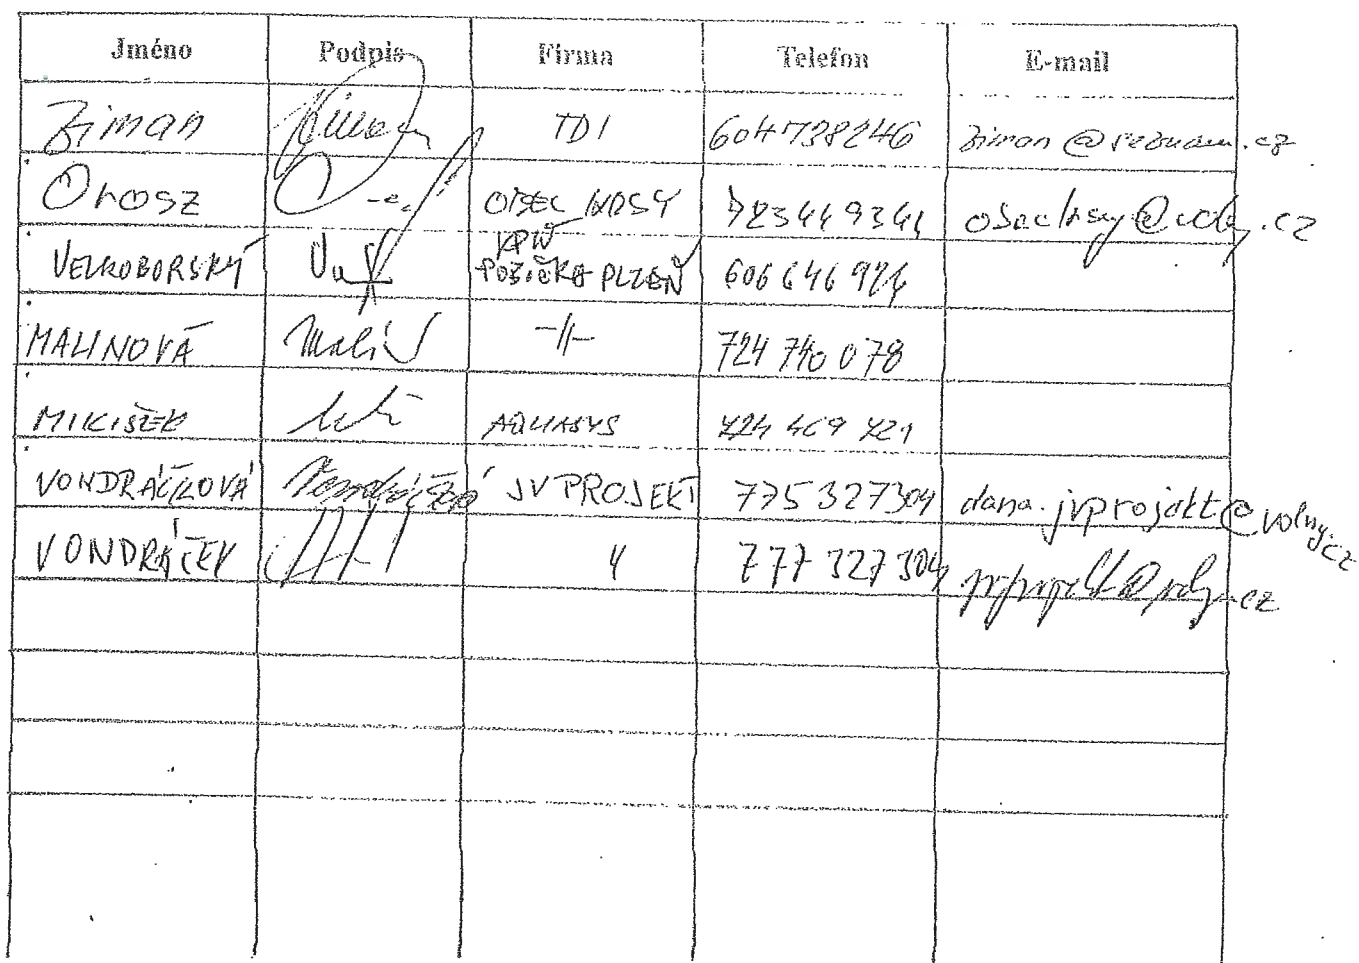 Jméno Podpis Firma Telefon E-mail
Ziman TDI 604738246 ziman@seznam.cz
Orosz OBEC 723449341
VELKOBORSKÝ POBOČKA PLZEŇ 606 646
MALINOVÁ -//- 724 740 078
MIKIŠEK AQUASYS 724 469 721
VONDRÁČKOVÁ JV PROJEKT 775327304 dana.jvprojekt@volny.cz
VONDRÁČEK 777 327 304